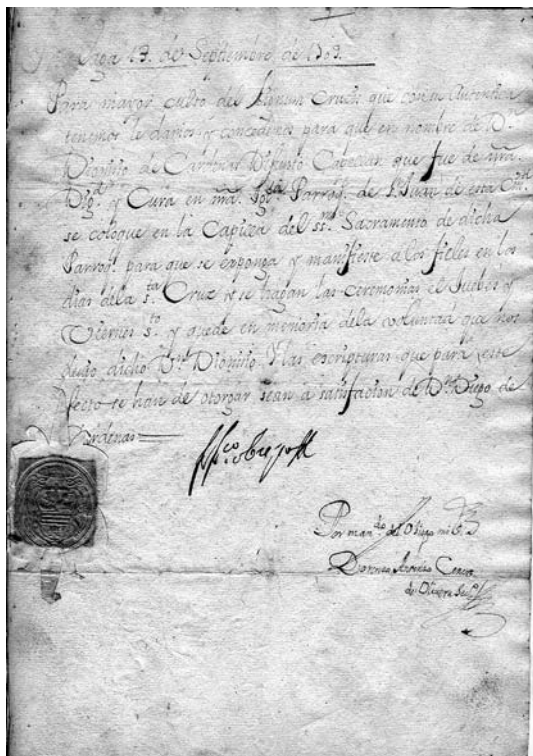 Malaga 13. de Septiembre de 1709.
Para mayor culto del Lignum Crucis que con su Autentica
tenemos le damos y concedemos para que en nombre de Dn.
Dionisio de Cardenas Difunto Capellan que fue de nña.
Digd. y Cura en nña. Iglª. Parroql. de Sn. Juan de esta Ciud.
se coloque en la Capilla del ssmo. Sacramento de dicha
Parroql. para que se exponga y manifieste a los fieles en los
dias de la sta. Cruz y se hagan las ceremonias el Juebes y
Viernes sto. y quede en memoria de la voluntad que nos
dicho Dn. Dionisio. Y las escripturas que para este
efecto se han de otorgar sean a satisfacion de Dn. Diego de
Cardenas
Por mando. del Obispo mi Sr.
de Olivera Secrio.